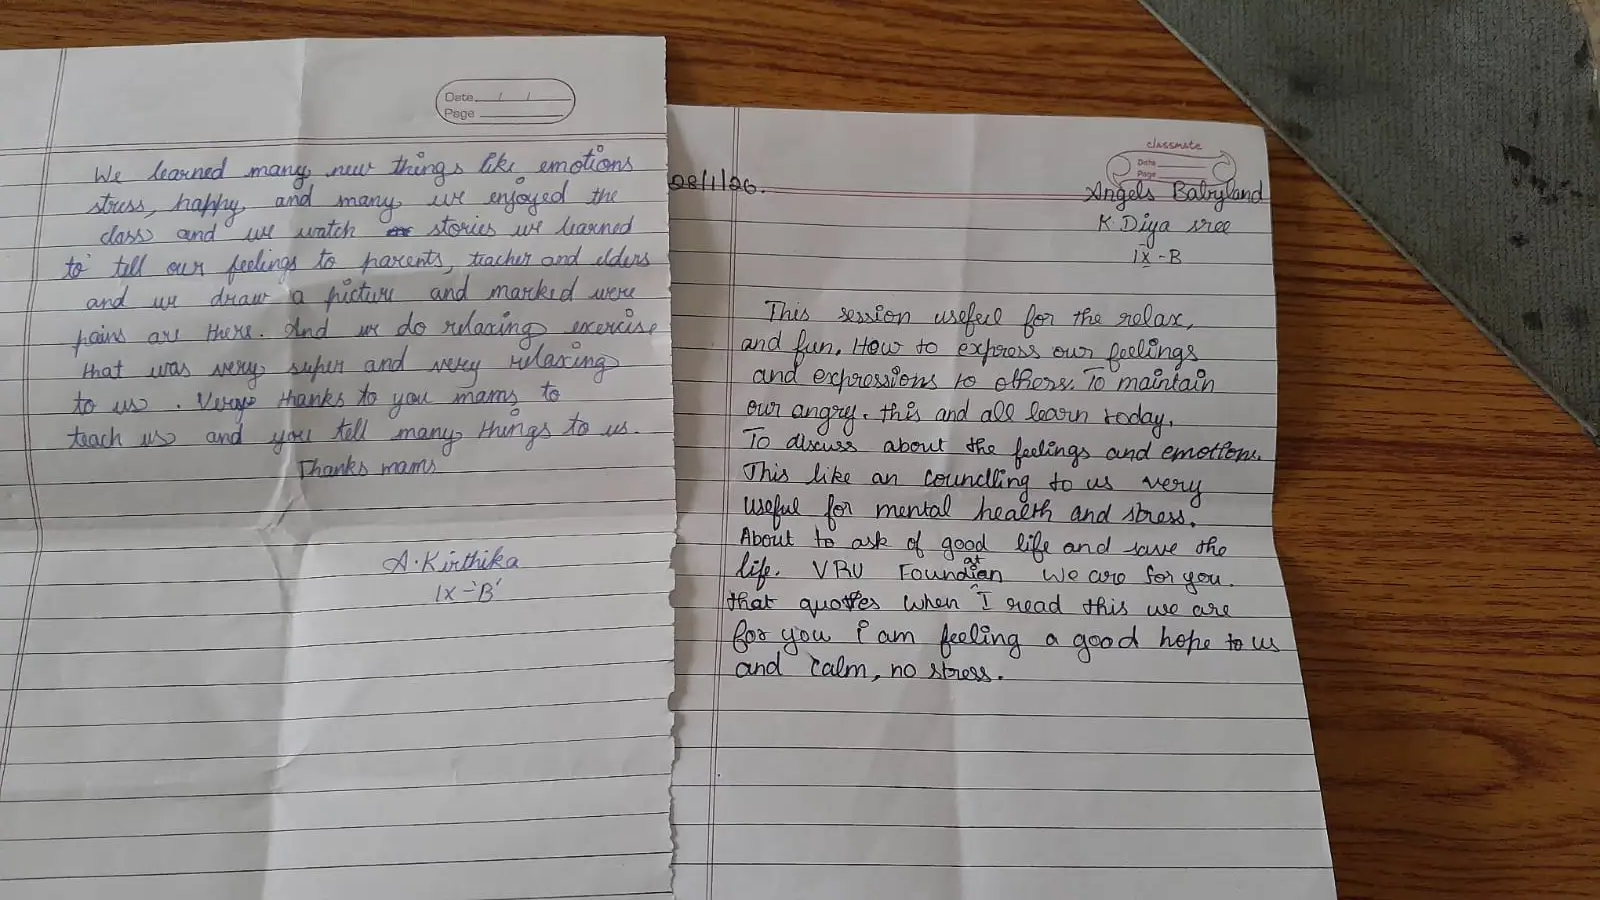 Date / /
Page
We learned many new things like emotions
stress, happy and many we enjoyed the
class and we watch stories we learned
to tell our feelings to parents, teacher and elders
and we draw a picture and marked were
pains are there. And we do relaxing exercise
that was very super and very relaxing
to us. Very thanks to you mams to
teach us and you tell many things to us.
Thanks mams
A. Kirthika
IX-'B'
classmate
Date
Page
28/1/26.
Angels Babyland
K. Diya sree
IX-B
This session useful for the relax,
and fun. How to express our feelings
and expressions to others. To maintain
our angry. this and all learn today.
To discuss about the feelings and emotions.
This like an councling to us very
useful for mental health and stress.
About to ask of good life and save the
life. VRU Foundatian We are for you.
that quotes when I read this we are
for you i am feeling a good hope to us
and calm, no stress.